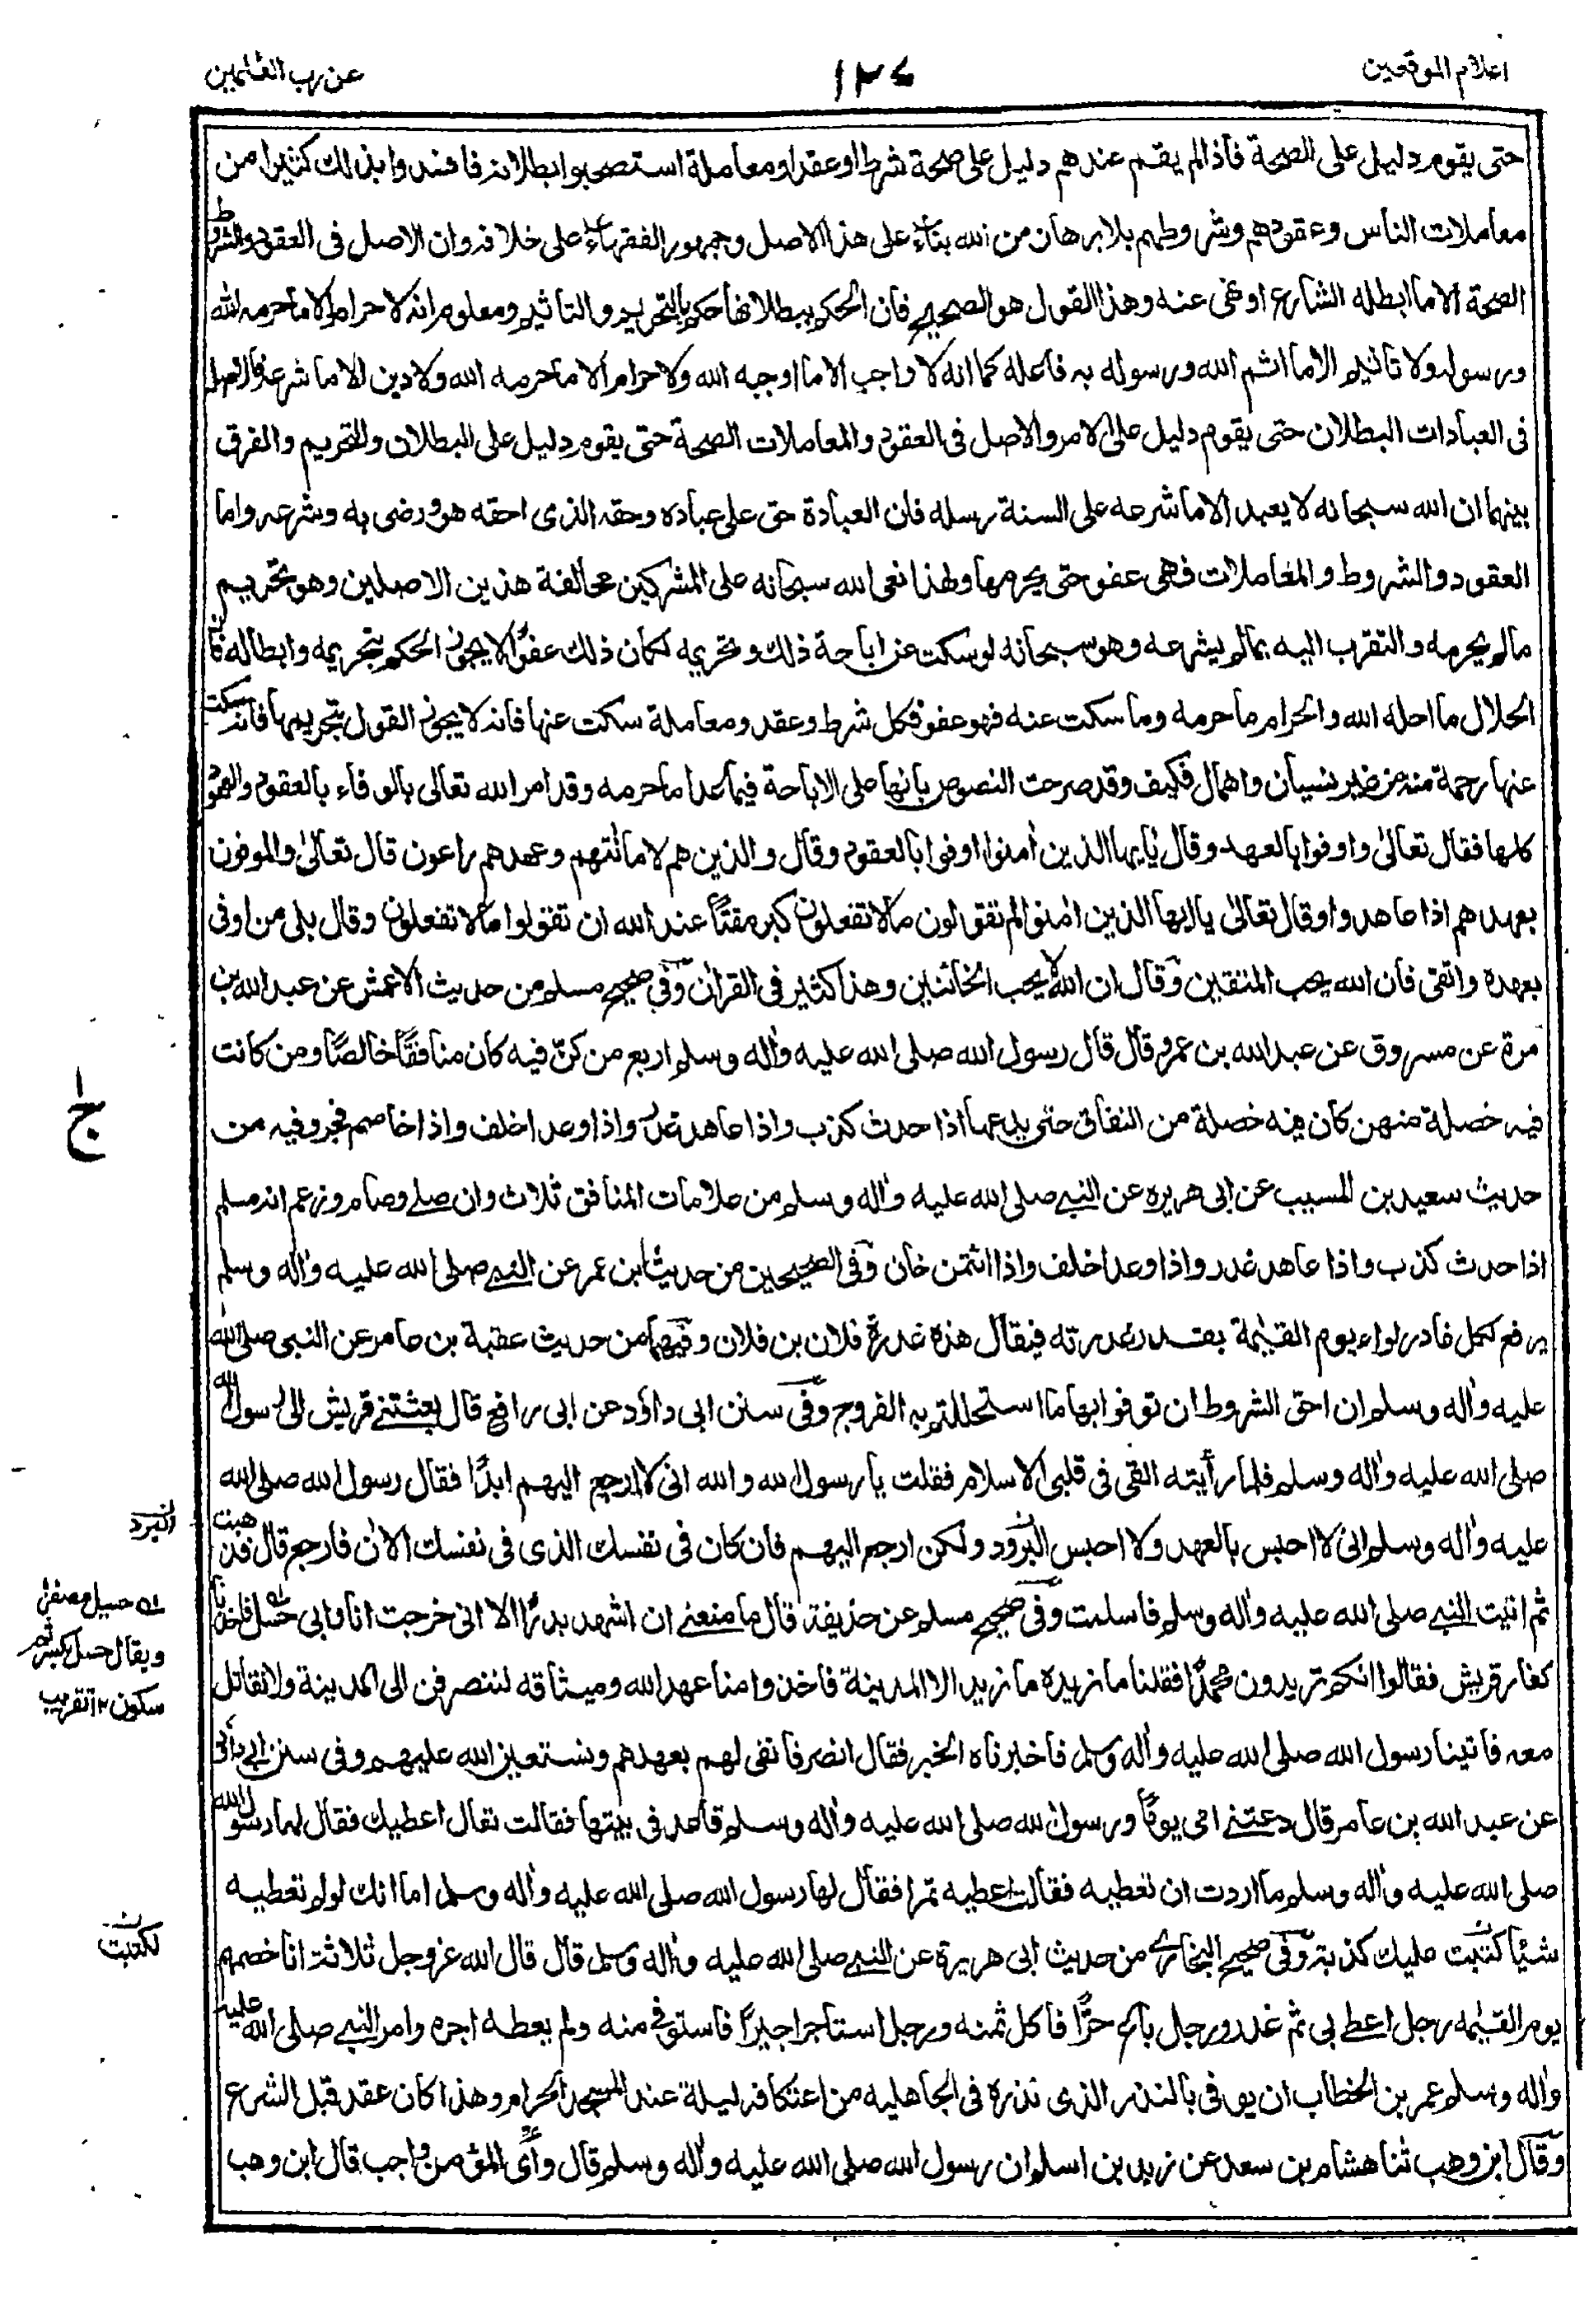 اعلام الموقعين
١٢٤
عن رب العٰلمين
حتى يقوم دليل على الصحة فاذا لم يقم عندهم دليل على صحة شرط او عقد او معاملة استصحبوا بطلانه فافسدوا بذلك كثيرا من
معاملات الناس وعقودهم وشروطهم بلا برهان من الله بناءً على هذا الاصل وجمهور الفقهاء على خلافه وان الاصل فى العقود والشروط
الصحة الا ما ابطله الشارع او نهى عنه وهذا القول هو الصحيح فان الحكم ببطلانها حكم بالتحريم والتاثيم ومعلوم انه لا حرام الا ما حرمه الله
ورسوله ولا تاثيم الا ما اثم الله ورسوله به فاعله كما انه لا واجب الا ما اوجبه الله ولا حرام الا ما حرمه الله ولا دين الا ما شرعه فالاصل
فى العبادات البطلان حتى يقوم دليل على الامر والاصل فى العقود والمعاملات الصحة حتى يقوم دليل على البطلان والتحريم والفرق
بينهما ان الله سبحانه لا يعبد الا ما شرعه على السنة رسله فان العبادة حق على عباده وحقه الذى احقه هو ورضى به وشرعه واما
العقود والشروط والمعاملات فهى عفو حتى يحرمها ولهذا نعى الله سبحانه على المشركين مخالفة هذين الاصلين وهو تحريم
مالم يحرمه والتقرب اليه بمالم يشرعه وهو سبحانه لو سكت عن اباحة ذلك وتحريمه لكان ذلك عفوًا لا يجوز الحكم بتحريمه وابطاله فان
الحلال ما احله الله والحرام ما حرمه وما سكت عنه فهو عفو فكل شرط وعقد ومعاملة سكت عنها فانه لا يجوز القول بتحريمها فانه سكت
عنها رحمة منه من غير نسيان واهمال فكيف وقد صرحت النصوص بانها على الاباحة فيما عدا ما حرمه وقد امر الله تعالى بالوفاء بالعقود والعهود
كلها فقال تعالىٰ واوفوا بالعهد وقال يٰايها الذين اٰمنوا اوفوا بالعقود وقال والذين هم لاماناتهم وعهدهم راعون قال تعالىٰ والموفون
بعهدهم اذا عاهدوا وقال تعالىٰ ياايها الذين اٰمنوا لم تقولون مالا تفعلون كبر مقتًا عند الله ان تقولوا مالا تفعلون وقال بلى من اوفى
بعهده واتقى فان الله يحب المتقين وقال ان الله لا يحب الخائنين وهذا كثير فى القراٰن وفى صحيح مسلم من حديث الاعمش عن عبد الله بن
مرة عن مسروق عن عبد الله بن عمرو قال قال رسول الله صلى الله عليه واٰله وسلم اربع من كنّ فيه كان منافقًا خالصًا ومن كانت
فيه خصلة منهن كان فيه خصلة من النفاق حتى يدعها اذا حدث كذب واذا عاهد غدر واذا وعد اخلف واذا خاصم فجر وفيه من
حديث سعيد بن المسيب عن ابى هريره عن النبى صلى الله عليه واٰله وسلم من علامات المنافق ثلاث وان صلى وصام وزعم انه مسلم
اذا حدث كذب واذا عاهد غدر واذا وعد اخلف واذا ائتمن خان وفى الصحيحين من حديث ابن عمر عن النبى صلى الله عليه واٰله وسلم
يرفع لكل غادر لواء يوم القيٰمة بقدر غدرته فيقال هذه غدرة فلان بن فلان وفيهما من حديث عقبة بن عامر عن النبى صلى الله
عليه واٰله وسلم ان احق الشروط ان توفوا بها ما استحللتم به الفروج وفى سنن ابى داؤد عن ابى رافع قال بعثتنى قريش الى رسول الله
صلى الله عليه واٰله وسلم فلما رأيته القى فى قلبى الاسلام فقلت يا رسول الله والله انى لا ارجع اليهم ابدًا فقال رسول الله صلى الله
عليه واٰله وسلم انى لا اخيس بالعهد ولا احبس البرود ولكن ارجع اليهم فان كان فى نفسك الذى فى نفسك الاٰن فارجع قال فذهبت
البرد
ثم اتيت النبى صلى الله عليه واٰله وسلم فاسلمت وفى صحيح مسلم عن حذيفة قال ما منعنى ان اشهد بدرًا الا انى خرجت انا وابى حسل فاخذنا
حسيل مصغرا
ويقال حسل بكسر ثم
سكون ١٢ تقريب
كفار قريش فقالوا انكم تريدون محمدًا فقلنا ما نريده ما نريد الا المدينة فاخذوا منا عهد الله وميثاقه لننصرفن الى المدينة ولا نقاتل
معه فاتينا رسول الله صلى الله عليه واٰله وسلم فاخبرناه الخبر فقال انصرفا نفى لهم بعهدهم ونستعين الله عليهم وفى سنن ابى داؤد
عن عبد الله بن عامر قال دعتنى امى يومًا ورسول الله صلى الله عليه واٰله وسلم قاعد فى بيتها فقالت تعال اعطيك فقال لها رسول الله
صلى الله عليه واٰله وسلم ما اردت ان تعطيه فقالت اعطيه تمرا فقال لها رسول الله صلى الله عليه واٰله وسلم اما انك لو لم تعطيه
شيئا كتبت عليك كذبة وفى صحيح البخارى من حديث ابى هريرة عن النبى صلى الله عليه واٰله وسلم قال قال الله عز وجل ثلاثة انا خصمهم
لكتبت
يوم القيٰمه رجل اعطى بى ثم غدر ورجل باع حرًّا فاكل ثمنه ورجل استاجر اجيرًا فاستوفى منه ولم يعطه اجره وامر النبى صلى الله عليه
واٰله وسلم عمر بن الخطاب ان يوفى بالنذر الذى نذره فى الجاهليه من اعتكافه ليلة عند المسجد الحرام وهذا كان عقد قبل الشرع
وقال ابن وهب ثنا هشام بن سعد عن زيد بن اسلم ان رسول الله صلى الله عليه واٰله وسلم قال وأى المؤمن واجب قال ابن وهب
ج ١